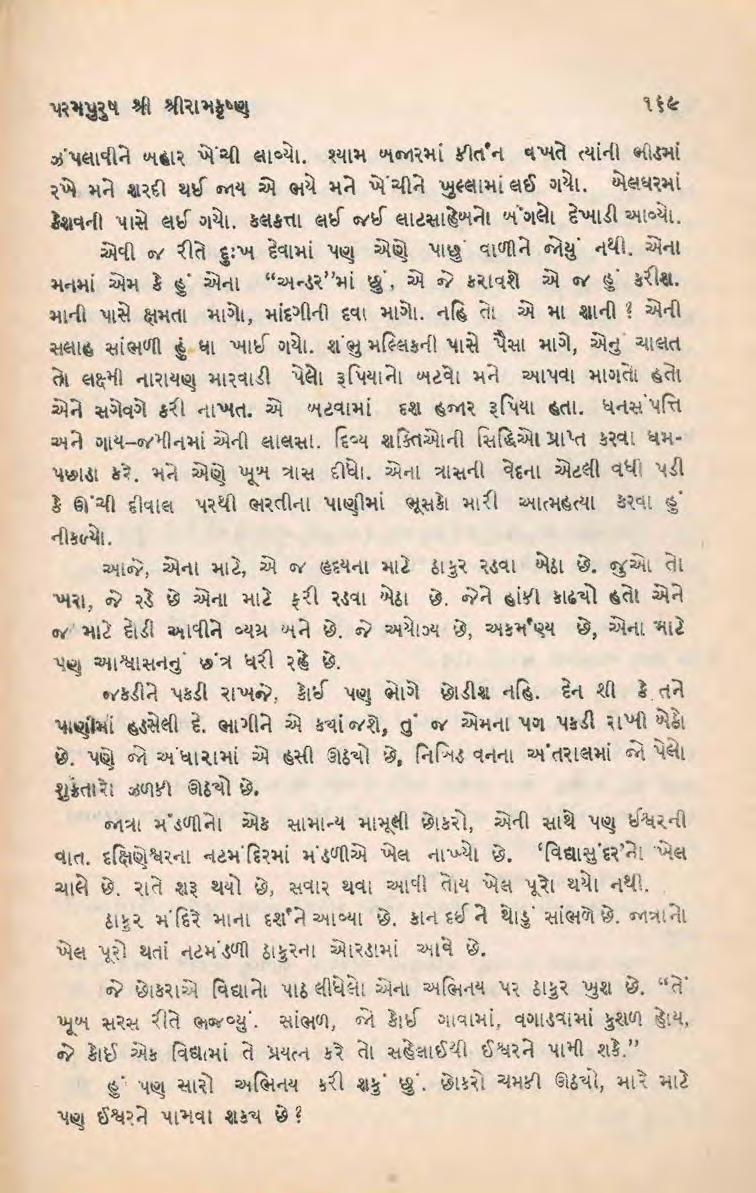 પરમપુરુષ શ્રી શ્રીરામકૃષ્ણ ૧૬૯
ઝંપલાવીને બહાર ખેંચી લાવ્યો. શ્યામ બજારમાં કીર્તન વખતે ત્યાંની ભીડમાં
રખે મને શરદી થઈ જાય એ ભયે મને ખેંચીને ખુલ્લામાં લઈ ગયો. બેલધરમાં
કેશવની પાસે લઈ ગયો. કલકત્તા લઈ જઈ લાટસાહેબનો બંગલો દેખાડી આવ્યો.
એવી જ રીતે દુઃખ દેવામાં પણ એણે પાછું વાળીને જોયું નથી. એના
મનમાં એમ કે હું એના “અન્ડર”માં છું, એ જે કરાવશે એ જ હું કરીશ.
માની પાસે ક્ષમતા માગો, માંદગીની દવા માગો. નહિ તો એ મા શાની ? એની
સલાહ સાંભળી હું ધા ખાઈ ગયો. શંભુ મલ્લિકની પાસે પૈસા માગે, એનું ચાલત
તો લક્ષ્મી નારાયણ મારવાડી પેલો રૂપિયાનો બટવો મને આપવા માગતો હતો
એને સગેવગે કરી નાખત. એ બટવામાં દશ હજાર રૂપિયા હતા. ધનસંપત્તિ
અને ગાય-જમીનમાં એની લાલસા. દિવ્ય શક્તિઓની સિદ્ધિઓ પ્રાપ્ત કરવા ધમ-
પછાડા કરે. મને એણે ખૂબ ત્રાસ દીધો. એના ત્રાસની વેદના એટલી વધી પડી
કે ઊંચી દીવાલ પરથી ભરતીના પાણીમાં ભૂસકો મારી આત્મહત્યા કરવા હું
નીકળ્યો.
આજે, એના માટે, એ જ હૃદયના માટે ઠાકુર રડવા બેઠા છે. જુઓ તો
ખરા, જે રડે છે એના માટે ફરી રડવા બેઠા છે. જેને હાંકી કાઢયો હતો એને
જ માટે દોડી આવીને વ્યગ્ર બને છે. જે અયોગ્ય છે, અકર્મણ્ય છે, એના માટે
પણ આશ્વાસનનું છત્ર ધરી રહે છે.
જકડીને પકડી રાખજે, કોઈ પણ ભોગે છોડીશ નહિ. દેન શી કે તને
પાણીમાં હડસેલી દે. ભાગીને એ કયાં જશે, તું જ એમના પગ પકડી રાખી બેઠો
છે. પણે જો અંધારામાં એ હસી ઊઠયો છે, નિબિડ વનના અંતરાલમાં જો પેલો
શુક્રતારો ઝળકી ઊઠયો છે.
જાત્રા મંડળીનો એક સામાન્ય મામૂલી છોકરો, એની સાથે પણ ઈશ્વરની
વાત. દક્ષિણેશ્વરના નટમંદિરમાં મંડળીએ ખેલ નાખ્યો છે. ‘વિદ્યાસુંદર’નો ખેલ
ચાલે છે. રાતે શરૂ થયો છે, સવાર થવા આવી તોય ખેલ પૂરો થયો નથી.
ઠાકુર મંદિરે માના દર્શને આવ્યા છે. કાન દઈ ને થોડું સાંભળે છે. જાત્રાનો
ખેલ પૂરો થતાં નટમંડળી ઠાકુરના ઓરડામાં આવે છે.
જે છોકરાએ વિદ્યાનો પાઠ લીધેલો એના અભિનય પર ઠાકુર ખુશ છે. “તેં
ખૂબ સરસ રીતે ભજવ્યું. સાંભળ, જો કોઈ ગાવામાં, વગાડવામાં કુશળ હોય,
જે કોઈ એક વિદ્યામાં તે પ્રયત્ન કરે તો સહેલાઈથી ઈશ્વરને પામી શકે.”
હું પણ સારો અભિનય કરી શકું છું. છોકરો ચમકી ઊઠયો, મારે માટે
પણ ઈશ્વરને પામવા શકય છે ?